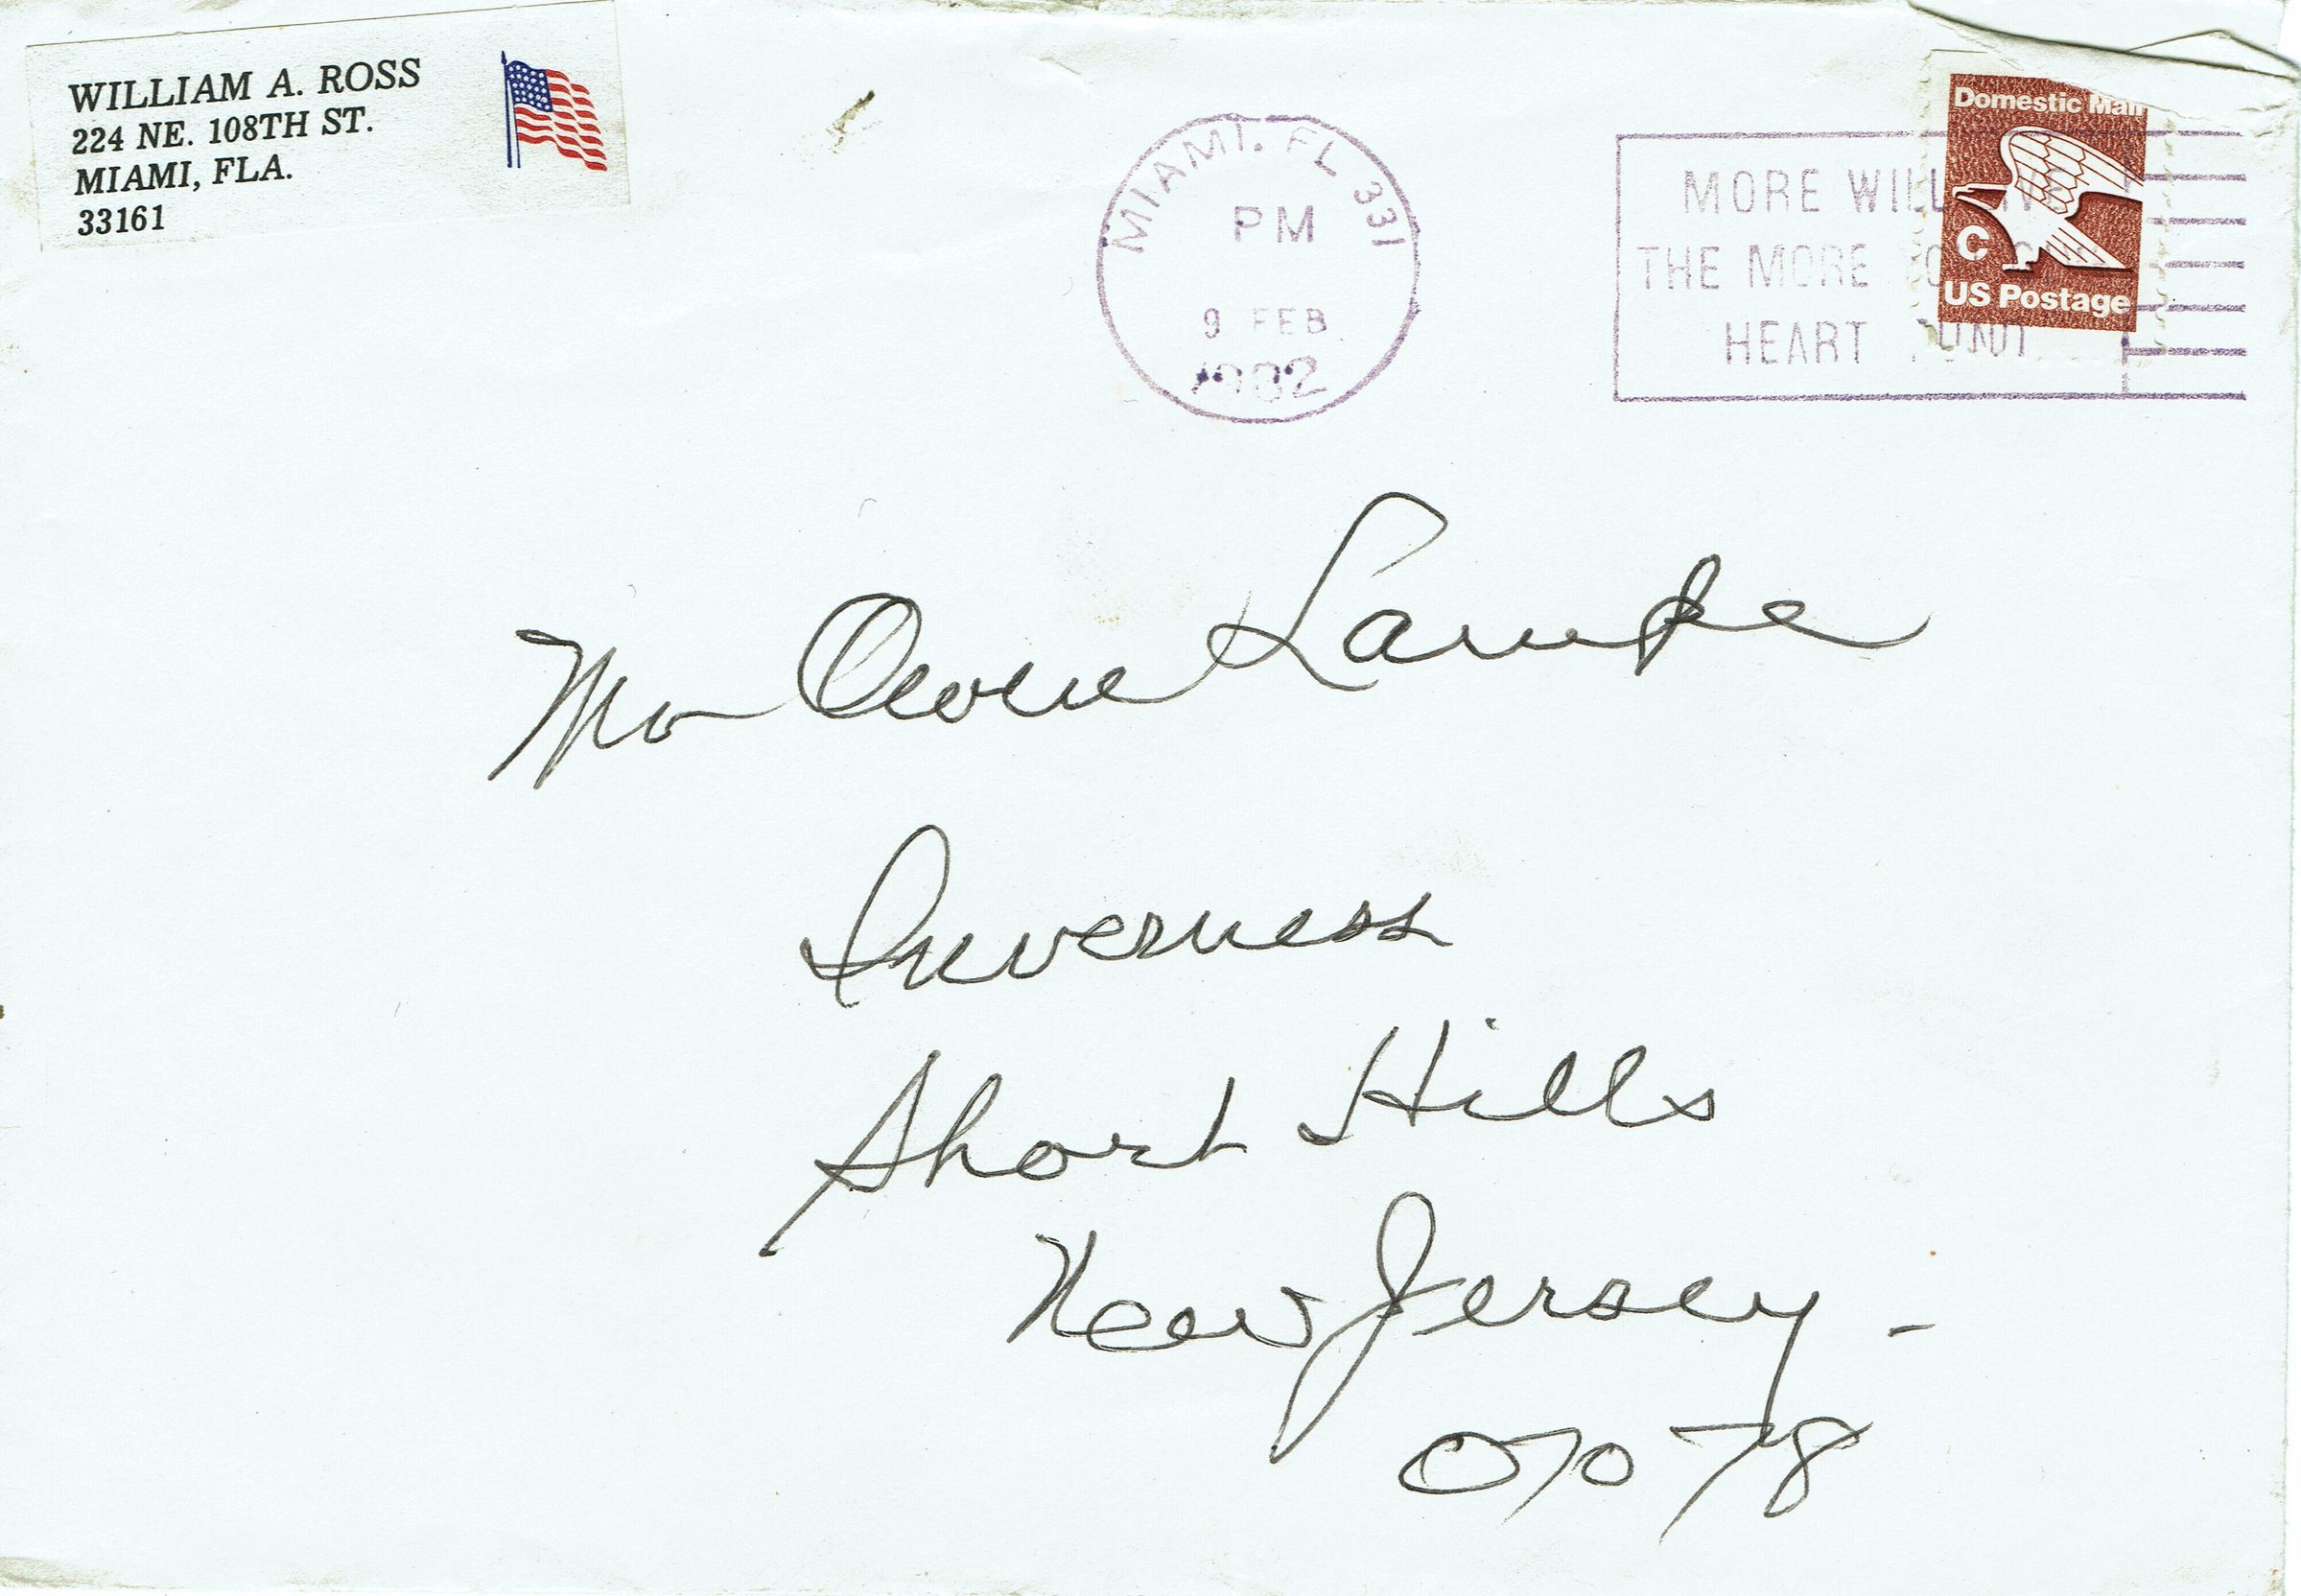 WILLIAM A. ROSS
224 NE. 108TH ST.
MIAMI, FLA.
33161
MIAMI. FL 331
PM
9 FEB
1982
MORE WILL LIVE
THE MORE YOU GIVE
HEART FUND
Domestic Mail
C
US Postage
Mr Owen Lampe
Inverness
Short Hills
New Jersey -
07078